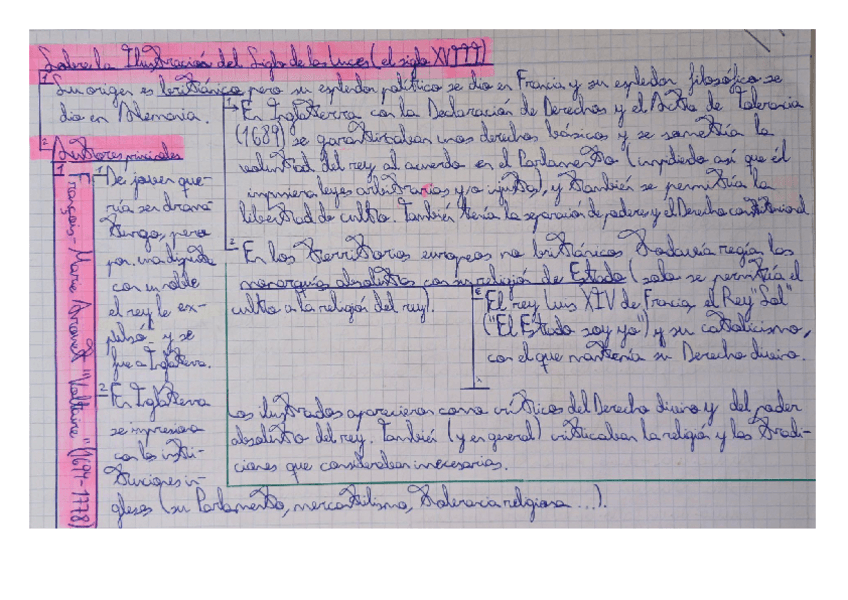 Sobre la Ilustración del Siglo de las Luces (el siglo XVIII)
1. Su origen es británico pero su esplendor político se dio en Francia y su esplendor filosófico se
dio en Alemania.
1. En Inglaterra con la Declaración de Derechos y el Acta de Tolerancia
(1689) se garantizaban unos derechos básicos y se sometía la
voluntad del rey al acuerdo en el Parlamento (impidiendo así que él
impusiera leyes arbitrarias y/o injustas), y también se permitía la
libertad de culto. También tenía la separación de poderes y el Derecho constitucional.
2. En los territorios europeos no británicos todavía regían las
monarquías absolutas con su religión de Estado (solo se permitía el
culto a la religión del rey).
El rey Luis XIV de Francia, el Rey "Sol"
("El Estado soy yo") y su catolicismo,
con el que mantenía su Derecho divino.
Los ilustrados aparecieron como críticos del Derecho divino y del poder
absoluto del rey. También (y en general) criticaban la religión y las tradi-
ciones que consideraban innecesarias.
2. Autores principales
1. François-Marie Arouet "Voltaire" (1694-1778)
1. De joven que-
ría ser drama-
turgo, pero
por una disputa
con un noble
el rey le ex-
pulsó y se
fue a Inglaterra.
2. En Inglaterra
se impresiona
con las insti-
tuciones in-
glesas (su Parlamento, mercantilismo, tolerancia religiosa ...).